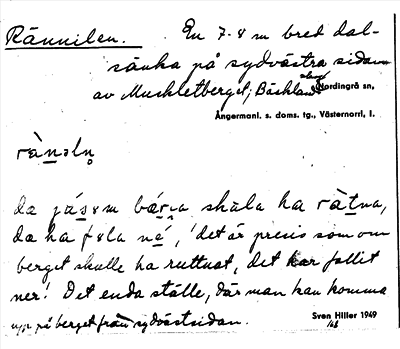 Rännilen. En 7-8 m bred dal-
sänka på sydvästra sidan
av Muckletberget, Bäckland
Nordingrå sn,
Ångermanl. s. doms. tg., Västernorrl. l.
rànəln̥
da jás&m bár̯i̯a skula ha ràt̠na,
da ha f&la né, 'det är precis som om
berget skulle ha ruttnat, det har fallit
ner.' Det enda ställe, där man kan komma
upp på berget från sydvästsidan.
Sven Hiller 1949